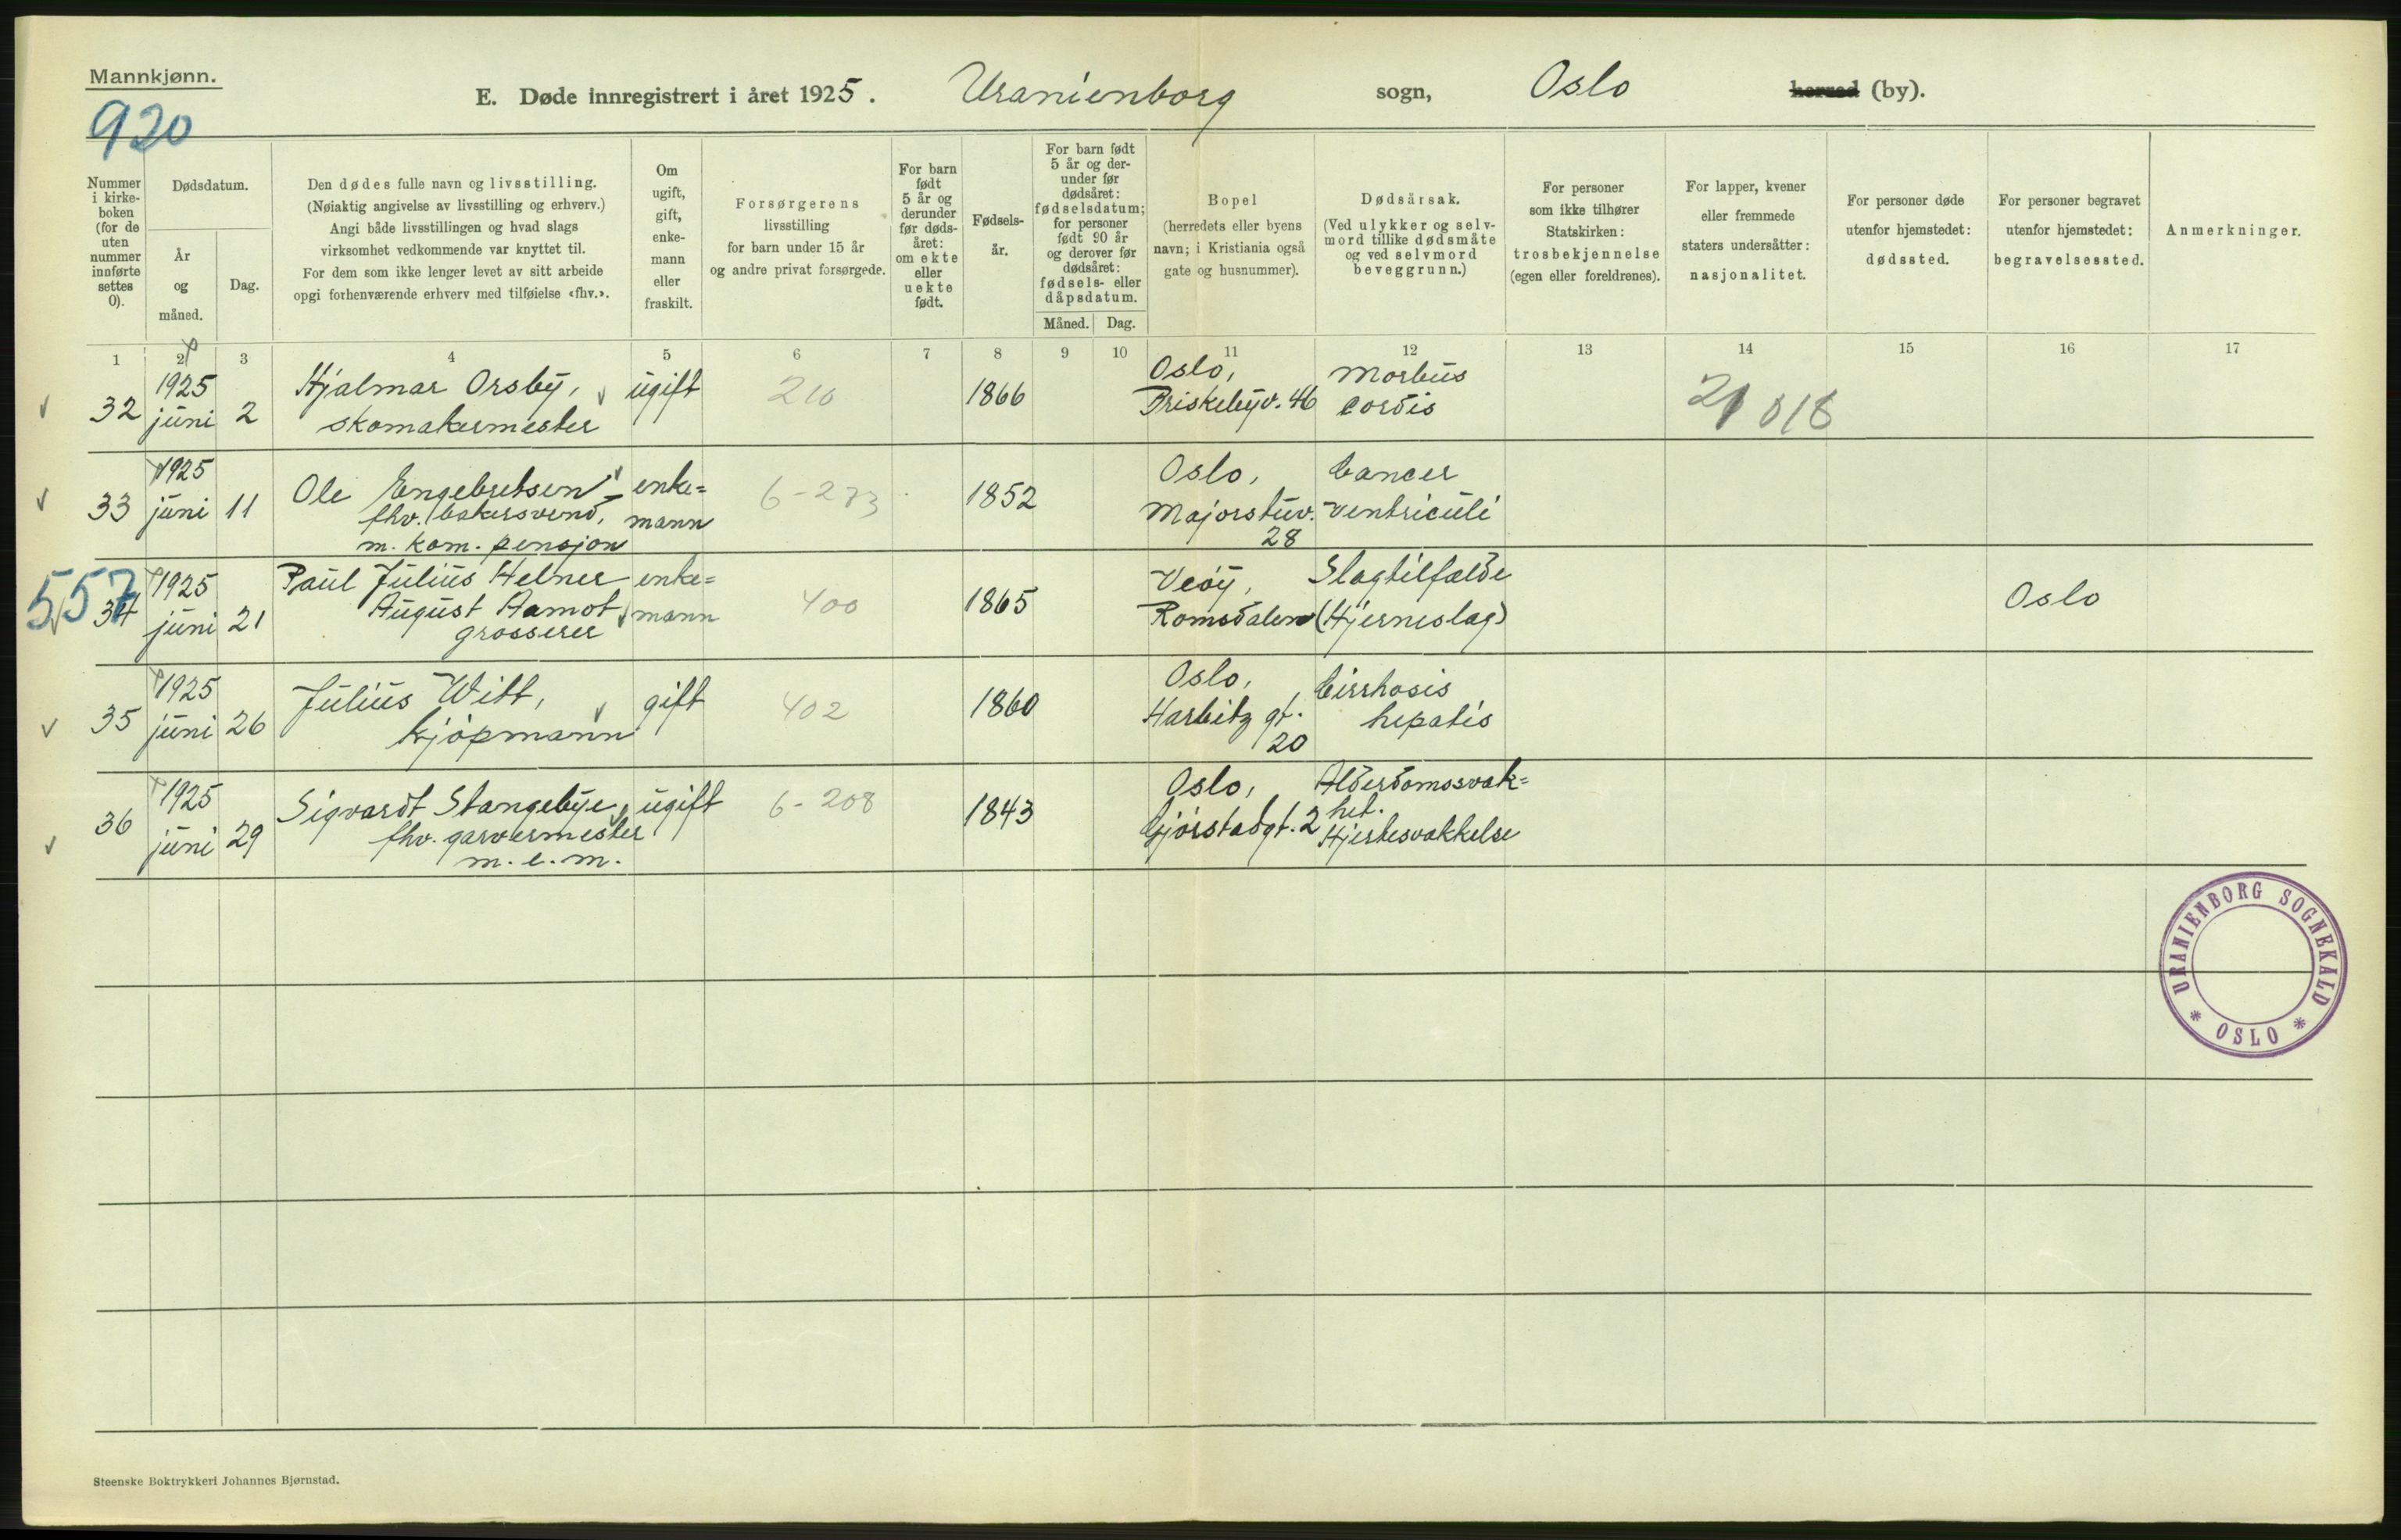 Mannkjønn.
920
E. Døde innregistrert i året 1925. Uranienborg sogn, Oslo herred (by).
Nummer i kirke-boken (for de uten nummer innførte settes 0).
Dødsdatum.
År og måned.
Dag.
Den dødes fulle navn og livsstilling.
(Nøiaktig angivelse av livsstilling og erhverv.)
Angi både livsstillingen og hvad slags
virksomhet vedkommende var knyttet til.
For dem som ikke lenger levet av sitt arbeide
opgi forhenværende erhverv med tilføielse «fhv.».
Om ugift, gift, enke-mann eller fraskilt.
Forsørgerens
livsstilling
for barn under 15 år
og andre privat forsørgede.
For barn født 5 år og derunder før døds-året: om ekte eller uekte født.
Fødsels-år.
For barn født 5 år og der-under før dødsåret: fødselsdatum; for personer født 90 år og derover før dødsåret: fødsels- eller dåpsdatum.
Måned. Dag.
Bopel
(herredets eller byens
navn; i Kristiania også
gate og husnummer).
Dødsårsak.
(Ved ulykker og selv-
mord tillike dødsmåte
og ved selvmord
beveggrunn.)
For personer
som ikke tilhører
Statskirken:
trosbekjennelse
(egen eller foreldrenes).
For lapper, kvener
eller fremmede
staters undersåtter:
nasjonalitet.
For personer døde
utenfor hjemstedet:
dødssted.
For personer begravet
utenfor hjemstedet:
begravelsessted.
Anmerkninger.
1 2 3 4 5 6 7 8 9 10 11 12 13 14 15 16 17
32 1925 juni 2 Hjalmar Orsby, skomakermester ugift 210 1866 Oslo, Briskebyv. 46 Morbus cordis 21 818
33 1925 juni 11 Ole Engebretsen fhv. bakersvend, m. kom. pensjon enke=mann 6-273 1852 Oslo, Majorstuv. 28 Cancer ventriculi
557
34 1925 juni 21 Paul Julius Helner August Aamot grosserer enke=mann 400 1865 Veöy, Romsdalen Slagtilfælde (Hjerneslag) Oslo
35 1925 juni 26 Julius Witt, kjöpmann gift 402 1860 Oslo, Harbitz gt. 20 Cirrhosis hepatis
36 1925 juni 29 Sigvardt Stangebye, fhv. garvermester m. e. m. ugift 6-208 1843 Oslo, Gjörstadgt. 2 Alderdomssvak=het. Hjertesvakkelse
URANIENBORG SOGNEKALD
* OSLO *
Steenske Boktrykkeri Johannes Bjørnstad.